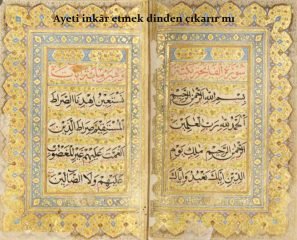 Ayeti inkâr etmek dinden çıkarır mı
بسم الله الرحمن الرحيم
الحمد لله رب العلمين
الرحمن الرحيم ملك يوم
الدين اياك نعبد واياك
نستعين اهدنا الصراط
المستقيم صراط الذين
انعمت عليهم غير المغضوب
عليهم ولا الضالين